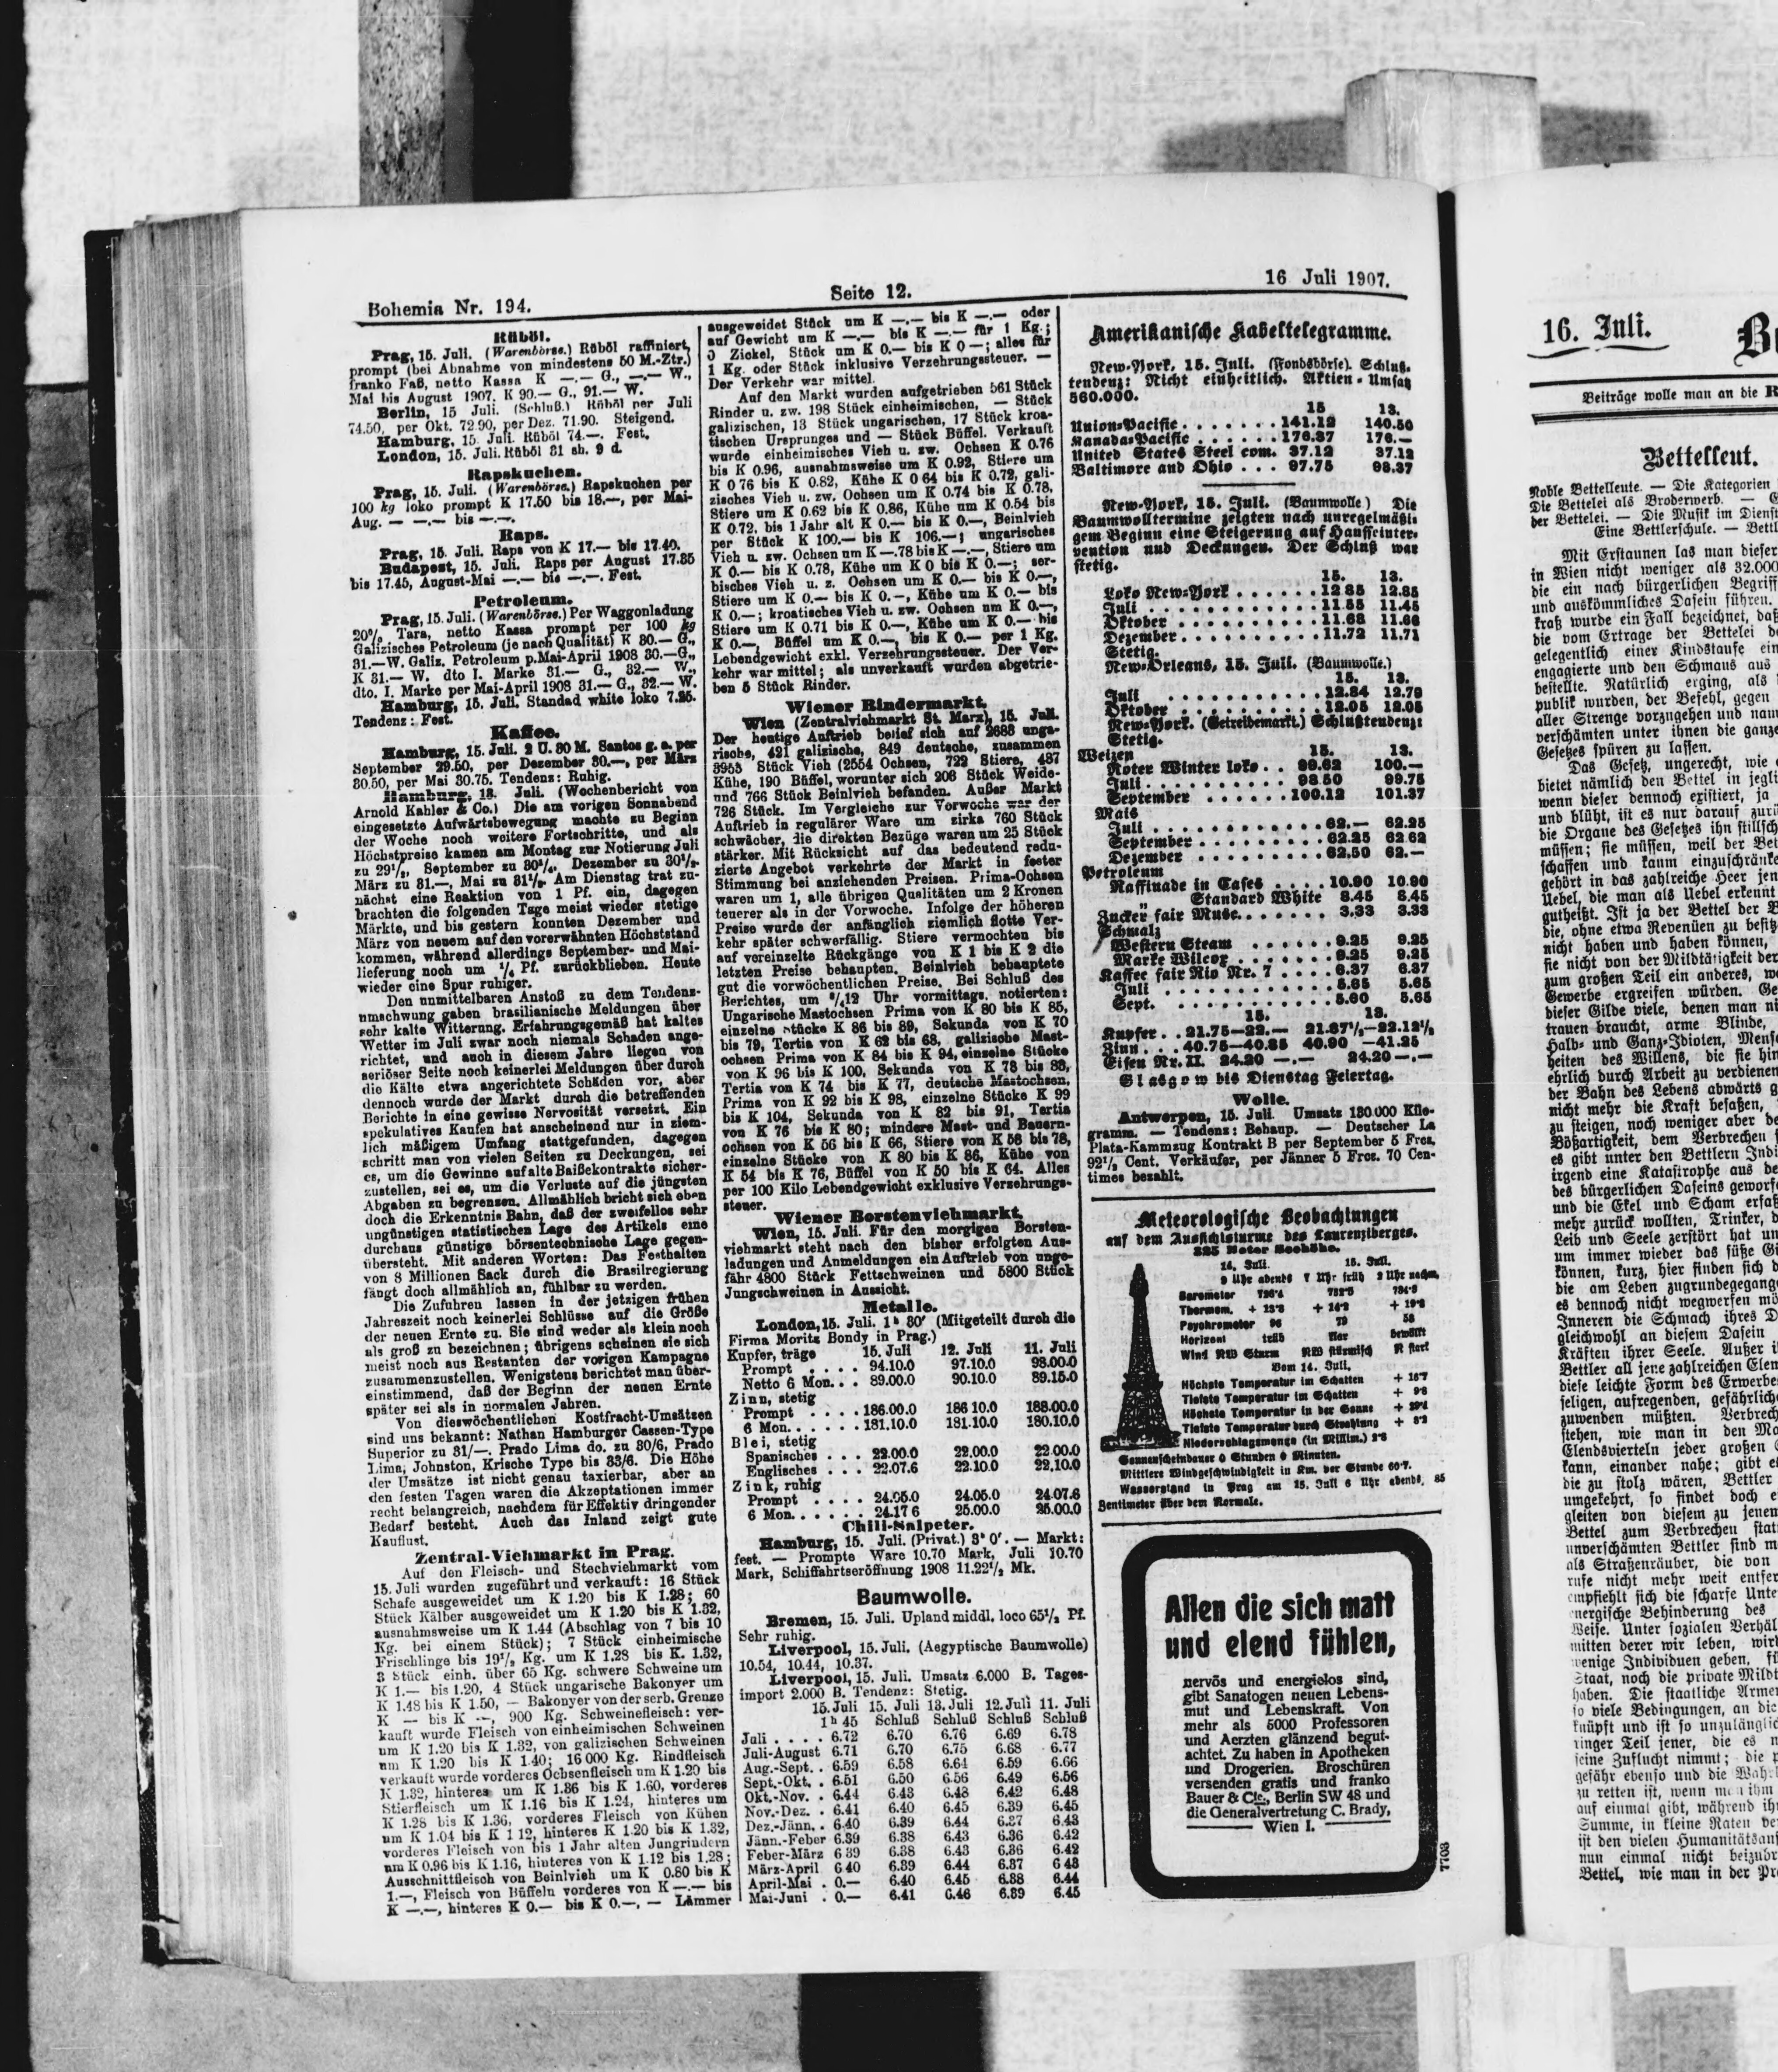 Bohemia Nr. 194.
Seite 12.
16 Juli 1907.
Rüböl.
Prag, 15. Juli. (Warenbörse.) Rüböl raffiniert,
prompt (bei Abnahme von mindestens 50 M.-Ztr.)
franko Faß, netto Kassa K —.— G., —.— W.,
Mai bis August 1907. K 90.— G., 91.— W.
Berlin, 15 Juli. (Schluß.) Rüböl per Juli
74.50, per Okt. 72.90, per Dez. 71.90. Steigend.
Hamburg, 15. Juli. Rüböl 74.—. Fest.
London, 15. Juli. Rüböl 31 sh. 9 d.
Rapskuchen.
Prag, 15. Juli. (Warenbörse.) Rapskuchen per
100 kg loko prompt K 17.50 bis 18.—, per Mai-
Aug. — —.— bis —.—.
Raps.
Prag, 15. Juli. Raps von K 17.— bis 17.40.
Budapest, 15. Juli. Raps per August 17.35
bis 17.45, August-Mai —.— bis —.—. Fest.
Petroleum.
Prag, 15. Juli. (Warenbörse.) Per Waggonladung
20% Tara, netto Kassa prompt per 100 kg
Galizisches Petroleum (je nach Qualität) K 30.— G.,
31.—W. Galiz. Petroleum p. Mai-April 1908 30.—G.,
K 31.— W. dto I. Marke 31.— G., 32.— W.,
dto. I. Marke per Mai-April 1908 31.— G., 32.— W.
Hamburg, 15. Juli. Standad white loko 7.25.
Tendenz: Fest.
Kaffee.
Hamburg, 15. Juli. 2 U. 30 M. Santos g. a. per
September 29.50, per Dezember 30.—, per März
30.50, per Mai 30.75. Tendenz: Ruhig.
Hamburg, 13. Juli. (Wochenbericht von
Arnold Kahler & Co.) Die am vorigen Sonnabend
eingesetzte Aufwärtsbewegung machte zu Beginn
der Woche noch weitere Fortschritte, und als
Höchstpreise kamen am Montag zur Notierung Juli
zu 29½, September zu 30¼, Dezember zu 30½,
März zu 31.—, Mai zu 31½. Am Dienstag trat zu-
nächst eine Reaktion von 1 Pf. ein, dagegen
brachten die folgenden Tage meist wieder stetige
Märkte, und bis gestern konnten Dezember und
März von neuem auf den vorerwähnten Höchststand
kommen, während allerdings September- und Mai-
lieferung noch um ¼ Pf. zurückblieben. Heute
wieder eine Spur ruhiger.
Den unmittelbaren Anstoß zu dem Tendenz-
umschwung gaben brasilianische Meldungen über
sehr kalte Witterung. Erfahrungsgemäß hat kaltes
Wetter im Juli zwar noch niemals Schaden ange-
richtet, und auch in diesem Jahre liegen von
seriöser Seite noch keinerlei Meldungen über durch
die Kälte etwa angerichtete Schäden vor, aber
dennoch wurde der Markt durch die betreffenden
Berichte in eine gewisse Nervosität versetzt. Ein
spekulatives Kaufen hat anscheinend nur in ziem-
lich mäßigem Umfang stattgefunden, dagegen
schritt man von vielen Seiten zu Deckungen, sei
es, um die Gewinne auf alte Baißekontrakte sicher-
zustellen, sei es, um die Verluste auf die jüngsten
Abgaben zu begrenzen. Allmählich bricht sich eben
doch die Erkenntnis Bahn, daß der zweifellos sehr
ungünstigen statistischen Lage des Artikels eine
durchaus günstige börsentechnische Lage gegen-
übersteht. Mit anderen Worten: Das Festhalten
von 8 Millionen Sack durch die Brasilregierung
fängt doch allmählich an, fühlbar zu werden.
Die Zufuhren lassen in der jetzigen frühen
Jahreszeit noch keinerlei Schlüsse auf die Größe
der neuen Ernte zu. Sie sind weder als klein noch
als groß zu bezeichnen; übrigens scheinen sie sich
meist noch aus Restanten der vorigen Kampagne
zusammenzustellen. Wenigstens berichtet man über-
einstimmend, daß der Beginn der neuen Ernte
später sei als in normalen Jahren.
Von dieswöchentlichen Kostfracht-Umsätzen
sind uns bekannt: Nathan Hamburger Cassen-Type
Superior zu 31/—. Prado Lima do. zu 30/6, Prado
Lima, Johnston, Krische Type bis 33/6. Die Höhe
der Umsätze ist nicht genau taxierbar, aber an
den festen Tagen waren die Akzeptationen immer
recht belangreich, nachdem für Effektiv dringender
Bedarf besteht. Auch das Inland zeigt gute
Kauflust.
Zentral-Viehmarkt in Prag.
Auf den Fleisch- und Stechviehmarkt vom
15. Juli wurden zugeführt und verkauft: 16 Stück
Schafe ausgeweidet um K 1.20 bis K 1.28; 60
Stück Kälber ausgeweidet um K 1.20 bis K 1.32,
ausnahmsweise um K 1.44 (Abschlag von 7 bis 10
Kg. bei einem Stück); 7 Stück einheimische
Frischlinge bis 19½ Kg. um K 1.28 bis K. 1.32,
3 Stück einh. über 65 Kg. schwere Schweine um
K 1.— bis 1.20, 4 Stück ungarische Bakonyer um
K 1.48 bis K 1.50, — Bakonyer von der serb. Grenze
K — bis K —, 900 Kg. Schweinefleisch: ver-
kauft wurde Fleisch von einheimischen Schweinen
um K 1.20 bis K 1.32, von galizischen Schweinen
um K 1.20 bis K 1.40; 16 000 Kg. Rindfleisch
verkauft wurde vorderes Ochsenfleisch um K 1.20 bis
K 1.32, hinteres um K 1.36 bis K 1.60, vorderes
Stierfleisch um K 1.16 bis K 1.24, hinteres um
K 1.28 bis K 1.36, vorderes Fleisch von Kühen
um K 1.04 bis K 1 12, hinteres K 1.20 bis K 1.32,
vorderes Fleisch von bis 1 Jahr alten Jungrindern
um K 0.96 bis K 1.16, hinteres von K 1.12 bis 1.28;
Ausschnittfleisch von Beinlvieh um K 0.80 bis K
1.—, Fleisch von Büffeln vorderes von K —.— bis
K —.—, hinteres K 0.— bis K 0.—, — Lämmer
ausgeweidet Stück um K —.— bis K —.— oder
auf Gewicht um K —.— bis K —.— für 1 Kg.;
0 Zickel, Stück um K 0.— bis K 0 —; alles für
1 Kg. oder Stück inklusive Verzehrungssteuer. —
Der Verkehr war mittel.
Auf den Markt wurden aufgetrieben 561 Stück
Rinder u. zw. 198 Stück einheimischen, — Stück
galizischen, 13 Stück ungarischen, 17 Stück kroa-
tischen Ursprunges und — Stück Büffel. Verkauft
wurde einheimisches Vieh u. zw. Ochsen K 0.76
bis K 0.96, ausnahmsweise um K 0.92, Stiere um
K 0 76 bis K 0.82, Kühe K 0 64 bis K 0.72, gali-
zisches Vieh u. zw. Ochsen um K 0.74 bis K 0.78,
Stiere um K 0.62 bis K 0.86, Kühe um K 0.54 bis
K 0.72. bis 1 Jahr alt K 0.— bis K 0.—, Beinlvieh
per Stück K 100.— bis K 106.—; ungarisches
Vieh u. zw. Ochsen um K —.78 bis K —.—, Stiere um
K 0.— bis K 0.78, Kühe um K 0 bis K 0.—; ser-
bisches Vieh u. z. Ochsen um K 0.— bis K 0.—,
Stiere um K 0.— bis K 0.—, Kühe um K 0.— bis
K 0.—; kroatisches Vieh u. zw. Ochsen um K 0.—,
Stiere um K 0.71 bis K 0.—, Kühe um K 0.— bis
K 0.—, Büffel um K 0.—, bis K 0.— per 1 Kg.
Lebendgewicht exkl. Verzehrungssteuer. Der Ver-
kehr war mittel; als unverkauft wurden abgetrie-
ben 5 Stück Rinder.
Wiener Rindermarkt.
Wien (Zentralviehmarkt St. Marx), 15. Juli.
Der heutige Auftrieb belief sich auf 2683 unga-
rische, 421 galizische, 849 deutsche, zusammen
3953 Stück Vieh (2554 Ochsen, 722 Stiere, 487
Kühe, 190 Büffel, worunter sich 206 Stück Weide-
und 766 Stück Beinlvieh befanden. Außer Markt
726 Stück. Im Vergleiche zur Vorwoche war der
Auftrieb in regulärer Ware um zirka 760 Stück
schwächer, die direkten Bezüge waren um 25 Stück
stärker. Mit Rücksicht auf das bedeutend redu-
zierte Angebot verkehrte der Markt in fester
Stimmung bei anziehenden Preisen. Prima-Ochsen
waren um 1, alle übrigen Qualitäten um 2 Kronen
teuerer als in der Vorwoche. Infolge der höheren
Preise wurde der anfänglich ziemlich flotte Ver-
kehr später schwerfällig. Stiere vermochten bis
auf vereinzelte Rückgänge von K 1 bis K 2 die
letzten Preise behaupten. Beinlvieh behauptete
gut die vorwöchentlichen Preise. Bei Schluß des
Berichtes, um ¾12 Uhr vormittags, notierten:
Ungarische Mastochsen Prima von K 80 bis K 85,
einzelne Stücke K 86 bis 89, Sekunda von K 70
bis 79, Tertia von K 62 bis 68, galizische Mast-
ochsen Prima von K 84 bis K 94, einzelne Stücke
von K 96 bis K 100, Sekunda von K 78 bis 83,
Tertia von K 74 bis K 77, deutsche Mastochsen,
Prima von K 92 bis K 98, einzelne Stücke K 99
bis K 104, Sekunda von K 82 bis 91, Tertia
von K 76 bis K 80; mindere Mast- und Bauern-
ochsen von K 56 bis K 66, Stiere von K 58 bis 78,
einzelne Stücke von K 80 bis K 86, Kühe von
K 54 bis K 76, Büffel von K 50 bis K 64. Alles
per 100 Kilo Lebendgewicht exklusive Verzehrungs-
steuer.
Wiener Borstenviehmarkt.
Wien, 15. Juli. Für den morgigen Borsten-
viehmarkt steht nach den bisher erfolgten Aus-
ladungen und Anmeldungen ein Auftrieb von unge-
fähr 4800 Stück Fettschweinen und 5800 Stück
Jungschweinen in Aussicht.
Metalle.
London, 15. Juli. 1h 30′ (Mitgeteilt durch die
Firma Moritz Bondy in Prag.)
Kupfer, träge 15. Juli 12. Juli 11. Juli
Prompt . . . . 94.10.0 97.10.0 98.00.0
Netto 6 Mon. . . 89.00.0 90.10.0 89.15.0
Zinn, stetig
Prompt . . . . 186.00.0 186 10.0 188.00.0
6 Mon. . . . . . 181.10.0 181.10.0 180.10.0
Blei, stetig
Spanisches . . . 22.00.0 22.00.0 22 00.0
Englisches . . . 22.07.6 22.10.0 22.10.0
Zink, ruhig
Prompt . . . . 24.05.0 24.05.0 24.07.6
6 Mon. . . . . . 24.17 6 25.00.0 25.00.0
Chili-Salpeter.
Hamburg, 15. Juli. (Privat.) 3h 0′. — Markt:
fest. — Prompte Ware 10.70 Mark, Juli 10.70
Mark, Schiffahrtseröffnung 1908 11.22½ Mk.
Baumwolle.
Bremen, 15. Juli. Upland middl. loco 65½ Pf.
Sehr ruhig.
Liverpool, 15. Juli. (Aegyptische Baumwolle)
10.54, 10.44, 10.37.
Liverpool, 15. Juli. Umsatz 6.000 B. Tages-
import 2.000 B. Tendenz: Stetig.
15. Juli 15. Juli 13. Juli 12. Juli 11. Juli
1h 45 Schluß Schluß Schluß Schluß
Juli . . . . 6.72 6.70 6.76 6.69 6.78
Juli-August 6.71 6.70 6.75 6.68 6.77
Aug.-Sept. . 6.59 6.58 6.64 6.59 6.66
Sept.-Okt. . 6.51 6.50 6.56 6.49 6.56
Okt.-Nov. . 6.44 6.43 6.48 6.42 6.48
Nov.-Dez. . 6.41 6.40 6.45 6.39 6.45
Dez.-Jänn. . 6.40 6.39 6.44 6.37 6.43
Jänn.-Feber 6.39 6.38 6.43 6.36 6.42
Feber-März 6 39 6.38 6.43 6.36 6.42
März-April 6 40 6.39 6.44 6.37 6 43
April-Mai . 0.— 6.40 6.45 6.38 6.44
Mai-Juni . 0.— 6.41 6.46 6.39 6.45
Amerikanische Kabeltelegramme.
New-York, 15. Juli. (Fondsbörse). Schluß-
tendenz: Nicht einheitlich. Aktien-Umsatz
560.000.
15 13.
Union-Pacific . . . . . . . 141.12 140.50
Kanada-Pacific . . . . . . 176.37 176.—
United States Steel com. 37.12 37.12
Baltimore and Ohio . . . 97.75 98.37
New-York, 15. Juli. (Baumwolle) Die
Baumwolltermine zeigten nach unregelmäßi-
gem Beginn eine Steigerung auf Hausseinter-
vention und Deckungen. Der Schluß war
stetig.
15. 13.
Loko New-York . . . . . . 12 85 12.85
Juli . . . . . . . . . . . 11.55 11.45
Oktober . . . . . . . . . 11.68 11.66
Dezember . . . . . . . . 11.72 11.71
Stetig.
New-Orleans, 15. Juli. (Baumwolle.)
15. 13.
Juli . . . . . . . . . . . 12.84 12.79
Oktober . . . . . . . . . 12.05 12.05
New-York. (Getreidemarkt.) Schlußtendenz:
Stetig.
Weizen 15. 13.
Roter Winter loko . . 99.62 100.—
Juli . . . . . . . . . . 98.50 99.75
September . . . . . . 100.12 101.37
Mais
Juli . . . . . . . . . . . 62.— 62.25
September . . . . . . . . 62.25 62 62
Dezember . . . . . . . . 62.50 62.—
Petroleum
Raffinade in Cases . . . . 10.90 10.90
„ Standard White 8.45 8.45
Zucker fair Musc. . . . . . . 3.33 3.33
Schmalz
Western Steam . . . . . . 9.25 9.25
Marke Wilcox . . . . . . . 9.25 9.25
Kaffee fair Rio Nr. 7 . . . . 6.37 6.37
Juli . . . . . . . . . . . 5.65 5.65
Sept. . . . . . . . . . . 5.60 5.65
15. 13.
Kupfer . . 21.75—22.— 21.87½—22.12½
Zinn . . . 40.75—40.85 40.90 —41.25
Eisen Nr. II. 24.20 —.— 24.20 —.—
Glasgow bis Dienstag Feiertag.
Wolle.
Antwerpen, 15. Juli. Umsatz 130.000 Kilo-
gramm. — Tendenz: Behaup. — Deutscher La
Plata-Kammzug Kontrakt B per September 5 Frcs.
92½ Cent. Verkäufer, per Jänner 5 Frcs. 70 Cen-
times bezahlt.
Meteorologische Beobachtungen
auf dem Aussichtsturme des Laurenziberges.
325 Meter Seehöhe.
14. Juli. 15. Juli.
9 Uhr abends 7 Uhr früh 2 Uhr nachm.
Barometer
Thermom.
Psychrometer 96 79 58
Horizont trüb klar bewölkt
Wind NW Sturm NW stürmisch N stark
Vom 14. Juli.
Höchste Temperatur im Schatten
Tiefste Temperatur im Schatten
Höchste Temperatur in der Sonne
Tiefste Temperatur durch Strahlung
Niederschlagsmenge (in Millim.)
Sonnenscheindauer 0 Stunden 0 Minuten.
Mittlere Windgeschwindigkeit in Km. per Stunde 60·7.
Wasserstand in Prag am 15. Juli 6 Uhr abends, 85
Zentimeter über dem Normale.
Allen die sich matt
und elend fühlen,
nervös und energielos sind,
gibt Sanatogen neuen Lebens-
mut und Lebenskraft. Von
mehr als 5000 Professoren
und Aerzten glänzend begut-
achtet. Zu haben in Apotheken
und Drogerien. Broschüren
versenden gratis und franko
Bauer & Cie., Berlin SW 48 und
die Generalvertretung C. Brady,
Wien I.
7703
16. Juli.
Beiträge wolle man an die
Bettelleut.
Noble Bettelleute. — Die Kategorien
Die Bettelei als Broderwerb. —
der Bettelei. — Die Musik im Dienst
Eine Bettlerschule. — Bettl
Mit Erstaunen las man dieser
in Wien nicht weniger als 32.000
die ein nach bürgerlichen Begriff
und auskömmliches Dasein führen.
kraß wurde ein Fall bezeichnet, daß
die vom Ertrage der Bettelei
gelegentlich einer Kindstaufe ein
engagierte und den Schmaus aus
bestellte. Natürlich erging, als
publik wurden, der Befehl, gegen
aller Strenge vorzugehen und nam
verschämten unter ihnen die ganze
Gesetzes spüren zu lassen.
Das Gesetz, ungerecht, wie
bietet nämlich den Bettel in jegli
wenn dieser dennoch existiert, ja
und blüht, ist es nur darauf zurü
die Organe des Gesetzes ihn stillsch
müssen; sie müssen, weil der Bet
schaffen und kaum einzuschränke
gehört in das zahlreiche Heer jen
Uebel, die man als Uebel erkennt
gutheißt. Ist ja der Bettel der
die, ohne etwa Revenüen zu besitz
nicht haben und haben können,
sie nicht von der Mildtätigkeit der
zum großen Teil ein anderes,
Gewerbe ergreifen würden. Ge
dieser Gilde viele, denen man ni
trauen braucht, arme Blinde,
Halb- und Ganz-Idioten, Mensc
heiten des Willens, die sie hin
ehrlich durch Arbeit zu verdienen
der Bahn des Lebens abwärts
nicht mehr die Kraft besaßen,
zu steigen, noch weniger aber
Bößartigkeit, dem Verbrechen
es gibt unter den Bettlern Indi
irgend eine Katastrophe aus
des bürgerlichen Daseins geworfe
und die Ekel und Scham erfaß
mehr zurück wollten, Trinker,
Leib und Seele zerstört hat un
um immer wieder das süße Gi
können, kurz, hier finden sich
die am Leben zugrundegegange
es dennoch nicht wegwerfen mö
Inneren die Schmach ihres
gleichwohl an diesem Dasein
Kräften ihrer Seele. Außer
Bettler all jene zahlreichen Elen
diese leichte Form des Erwerbe
seligen, aufregenden, gefährliche
zuwenden müßten. Verbrech
stehen, wie man in den
Elendsvierteln jeder großen
kann, einander nahe; gibt
die zu stolz wären, Bettler
umgekehrt, so findet doch
gleiten von diesem zu jenem
Bettel zum Verbrechen stat
unverschämten Bettler sind
als Straßenräuber, die von
rufe nicht mehr weit entfer
empfiehlt sich die scharfe Unte
energische Behinderung des
Weise. Unter sozialen Verhäl
mitten derer wir leben, wir
wenige Individuen geben,
Staat, noch die private Mildt
haben. Die staatliche Arme
so viele Bedingungen, an die
knüpft und ist so unzulänglic
ringer Teil jener, die es
seine Zuflucht nimmt; die
gefähr ebenso und die
zu retten ist, wenn man ihm
auf einmal gibt, während
Summe, in kleine Raten
ist den vielen Humanitätsans
nun einmal nicht beizub
Bettel, wie man in der